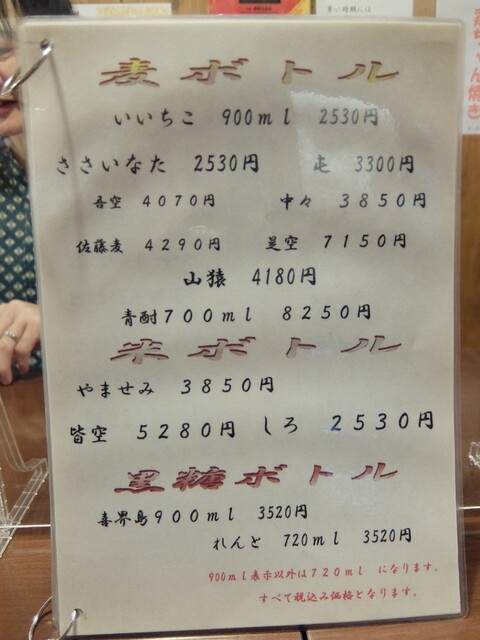 麦ボトル
いいちこ 900ml 2530円
ささいなた 2530円 屯 3300円
吾空 4070円 中々 3850円
佐藤麦 4290円 星空 7150円
山猿 4180円
青酎700ml 8250円
米ボトル
やませみ 3850円
皆空 5280円 しろ 2530円
黒糖ボトル
喜界島900ml 3520円
れんと 720ml 3520円
900ml表示以外は720ml になります。
すべて税込み価格となります。